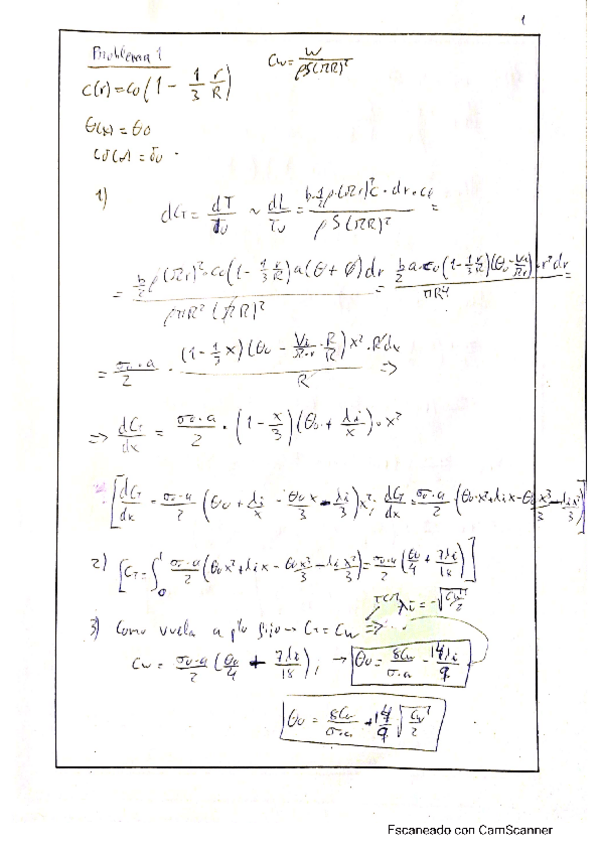 1
Problema 1
C_w = W / ρS(ΩR)²
c(r) = c₀(1 - 1/3 r/R)
θ(x) = θ₀
σ(x) = σ₀
1)
dC_T = dT/T₀ ~ dL/T₀ = b·½ρ(Ωr)²c·dr·c_l / ρS(ΩR)² =
= b/2 ρ(Ωr)²·c₀(1 - 1/3 r/R)a(θ + φ)dr / ρπR²(ΩR)² = b/2 a·c₀(1 - 1/3 r/R)(θ₀ - Vi/Ωr)·r²dr / πR⁴ =
= σ₀·a/2 · (1 - 1/3 x)(θ₀ - Vi/Ω·r · R/R)x²·R dx / R ⇒
⇒ dC_T/dx = σ₀·a/2 · (1 - x/3)(θ₀ + λi/x)·x²
[dC_T/dx = σ₀·a/2 (θ₀ + λi/x - θ₀x/3 - λi/3)x²; dC_T/dx = σ₀·a/2 · (θ₀·x² + λi x - θ₀ x³/3 - λi x²/3)]
2) [C_T = ∫₀¹ σ₀·a/2 (θ₀x² + λi x - θ₀x³/3 - λi x²/3) = σ₀·a/2 (θ₀/4 + 7λi/18)]
TCM λi = -√(C_w/2)
3) Como vuela a pto fijo → C_T = C_w ⇒
C_w = σ₀·a/2 (θ₀/4 + 7λi/18); → θ₀ = 8C_w/σ·a - 14λi/9
θ₀ = 8C_w/σ·a + 14/9 √(C_w/2)
Escaneado con CamScanner